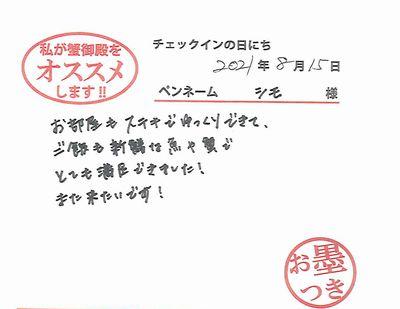 私が蟹御殿を
オススメ
します!!
チェックインの日にち
2021年8月15日
ペンネーム シモ 様
お部屋もステキでゆっくりできて、
ご飯も新鮮な魚や蟹で
とても満足できました!
また来たいです!
お墨
つき